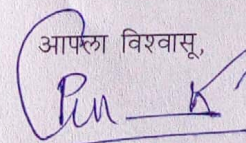 आपला विश्वासू,